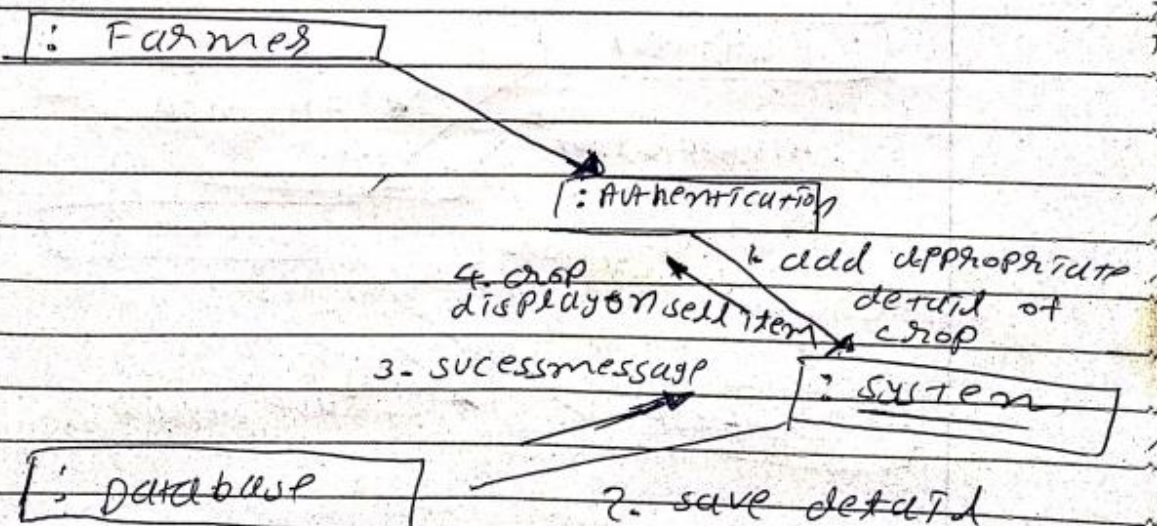 : Farmer
: Authentication
1. add appropriate
detail of
crop
4. crop
display on sell item
3. sucessmessage
: system
: Database
2. save detail